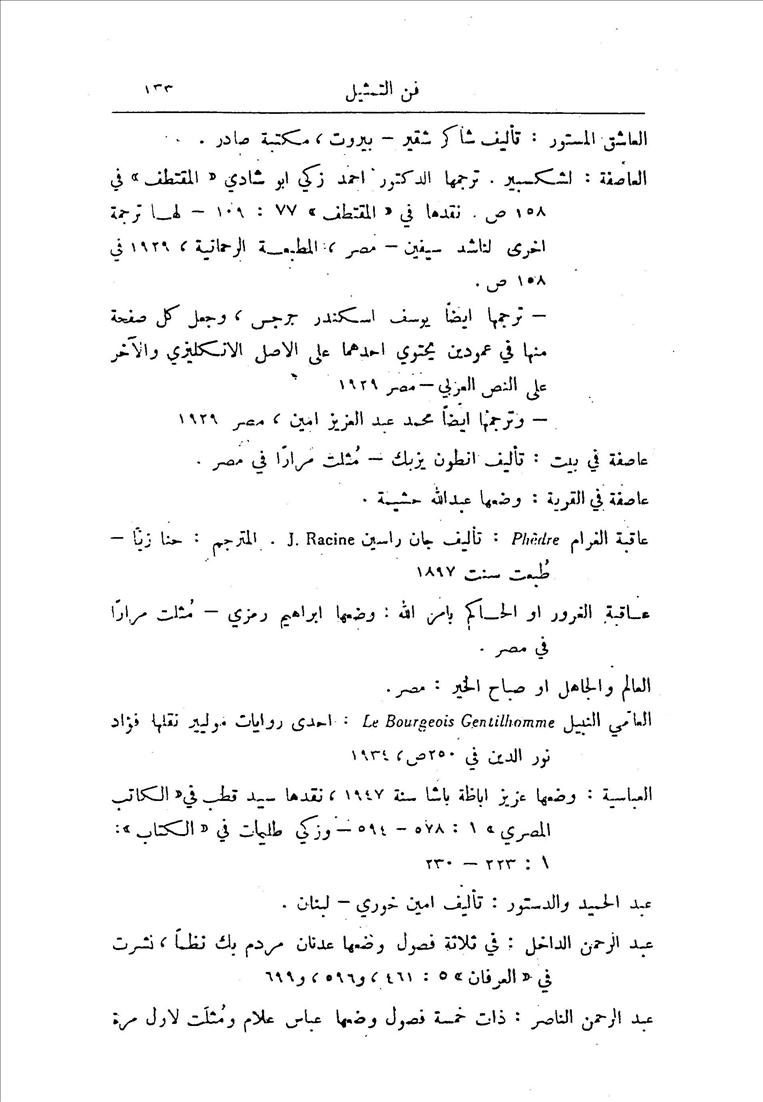 فن التمثيل ١٣٣
العاشق المستور : تأليف شاكر شقير – بيروت ، مكتبة صادر .
العاصفة : لشكسبير . ترجمها الدكتور احمد زكي ابو شادي « المقتطف » في
١٥٨ ص . نقدها في « المقتطف » ٧٧ : ١٠٩ – لهـا ترجمة
اخرى لناشد سيفين – مصر ، المطبعـة الرحمانية ، ١٩٢٩ في
١٥٨ ص .
– ترجمها ايضاً يوسف اسكندر جرجس ، وجعل كل صفحة
منها في عمودين يحتوي احدهما على الاصل الانكليزي والآخر
على النص العربي – مصر ١٩٢٩
– وترجمها ايضاً محمد عبد العزيز امين ، مصر ١٩٢٩
عاصفة في بيت : تأليف انطون يزبك – مُثلت مرارًا في مصر .
عاصفة في القرية : وضعها عبدالله حشيمة .
عاقبة الغرام Phèdre : تأليف جان راسين J. Racine . المترجم : حنا زيَّا –
طُبعت سنت ١٨٩٧
عـاقبة الغرور او الحـاكم بامر الله : وضعها ابراهيم رمزي – مُثلت مرارًا
في مصر .
العالم والجاهل او صباح الخير : مصر .
العامي النبيل Le Bourgeois Gentilhomme : احدى روايات موليير نقلها فؤاد
نور الدين في ٢٥٠ص ، ١٩٣٤
العباسية : وضعها عزيز اباظة باشا سنة ١٩٤٧ ، نقدها سيد قطب في « الكاتب
المصري » ١ : ٥٧٨ – ٥٩٤ – وزكي طليمات في « الكتاب » :
١ : ٢٢٣ – ٢٣٠
عبد الحميد والدستور : تأليف امين خوري – لبنان .
عبد الرحمن الداخل : في ثلاثة فصول وضعها عدنان مردم بك نظمـاً ، نشرت
في « العرفان » ٥ : ٤٦١ ، و٥٩٦ ، و٦٩٩
عبد الرحمن الناصر : ذات خمسة فصول وضعها عباس علام ومُثلَت لاول مرة